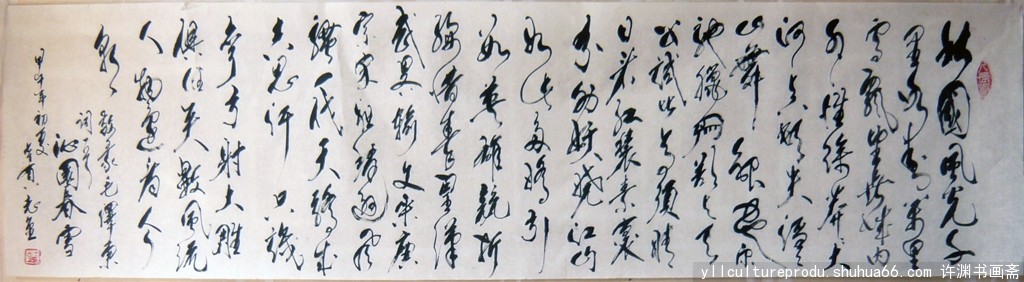 北國風光千
里冰封萬里
雪飄望長城內
外惟餘莽莽大
河上下頓失滔滔
山舞銀蛇原
馳蠟象欲與天
公試比高須晴
日看紅裝素裹
分外妖嬈江山
如此多嬌引
英雄競折
腰惜秦皇漢
武略輸文采唐
宗宋祖稍遜風
騷一代天驕成
吉思汗只識
彎弓射大雕
俱往矣數風流
人物還看今
朝
毛澤東
詞一首
沁園春雪
甲午年初夏
yllcultureprodu.shuhua66.com 许渊书画斋